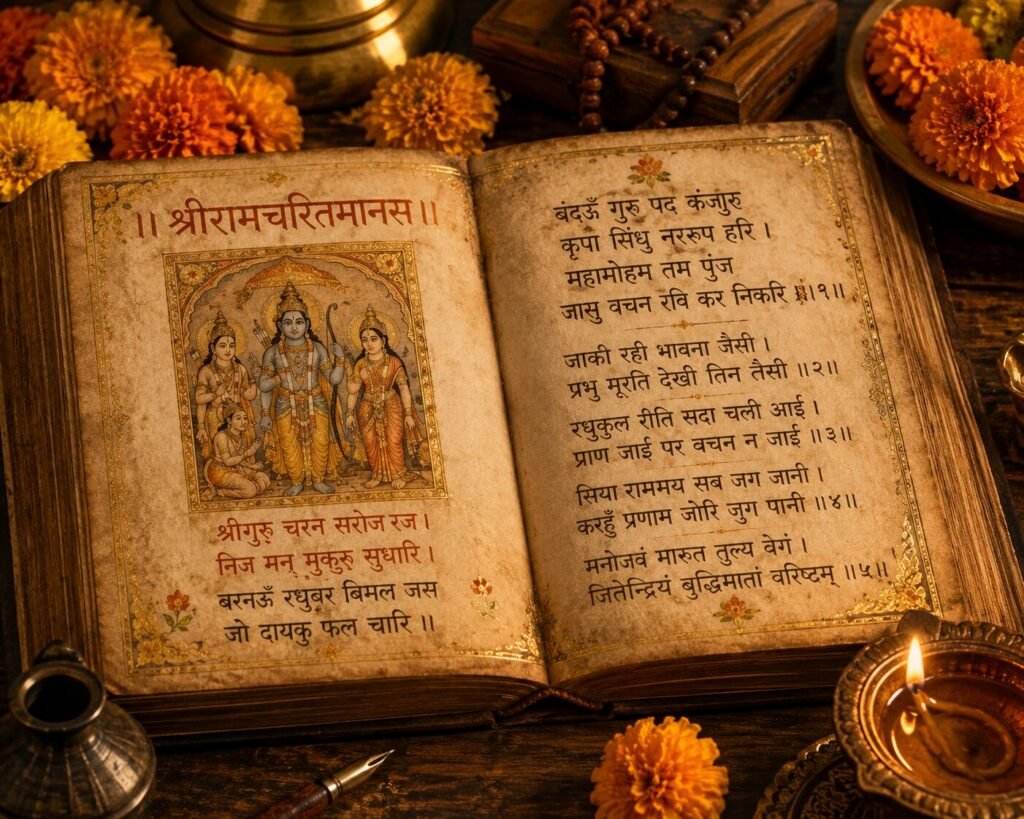 ।। श्रीरामचरितमानस ।।
श्रीगुरु चरन सरोज रज ।
निज मन् मुकुरु सुधारि ।
बरनऊँ रघुबर बिमल जस
जो दायकु फल चारि ।।
बंदऊँ गुरु पद कंजगुरु
कृपा सिंधु नररूप हरि ।
महामोहम तम पुंज
जासु वचन रवि कर निकरि ॥१॥
जाकी रही भावना जैसी ।
प्रभु मूरति देखी तिन तैसी ॥२॥
रधुकुल रीति सदा चली आई ।
प्राण जाई पर वचन न जाई ॥३॥
सिया राममय सब जग जानी ।
करहुँ प्रणाम जोरि जुग पानी ॥४॥
मनोजवं मारुत तुल्य वेगं ।
जितेन्द्रियं बुद्धिमातां वरिष्टम् ॥५॥